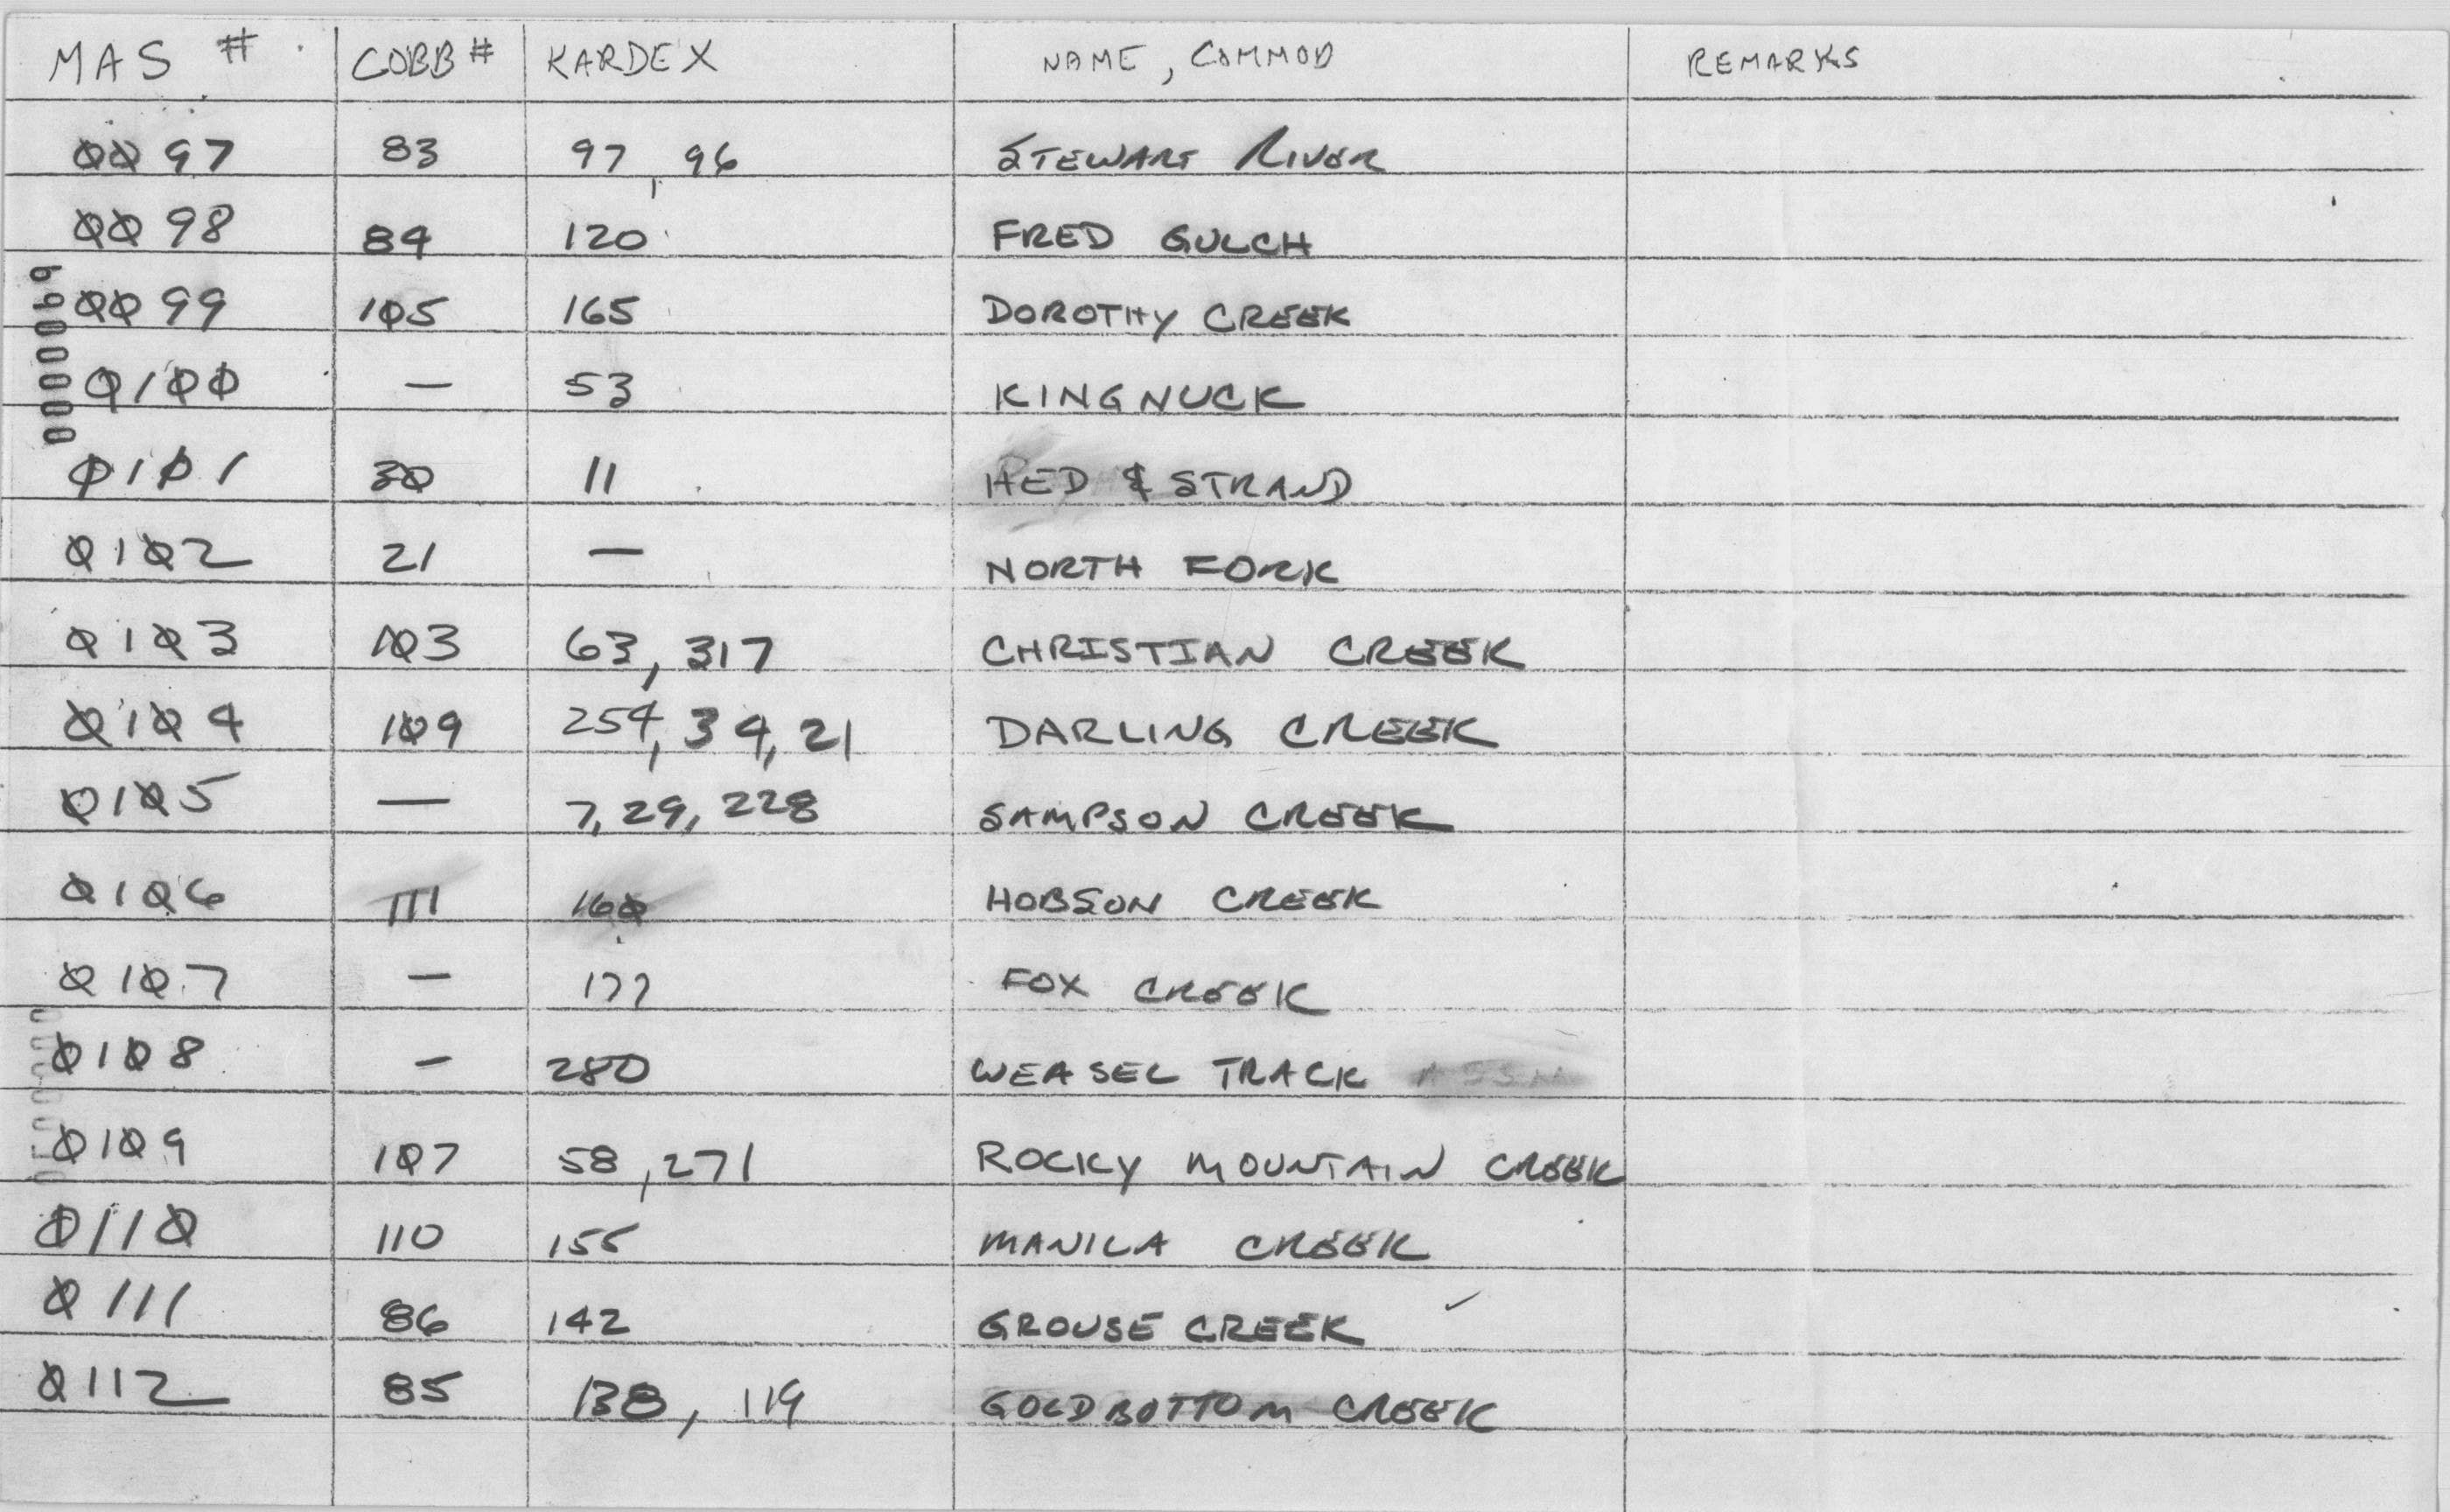 MAS # COBB # KARDEX NAME, COMMOD REMARKS
0097 83 97, 96 STEWART RIVER
0098 84 120 FRED GULCH
0099 105 165 DOROTHY CREEK
0100 — 53 KINGNUCK
0101 30 11 HED & STRAND
0102 21 — NORTH FORK
0103 103 63, 317 CHRISTIAN CREEK
0104 109 254, 34, 21 DARLING CREEK
0105 — 7, 29, 228 SAMPSON CREEK
0106 111 160 HOBSON CREEK
0107 — 177 FOX CREEK
0108 — 280 WEASEL TRACK ASSN
0109 107 58, 271 ROCKY MOUNTAIN CREEK
0110 110 155 MANILA CREEK
0111 86 142 GROUSE CREEK ✓
0112 85 138, 119 GOLDBOTTOM CREEK